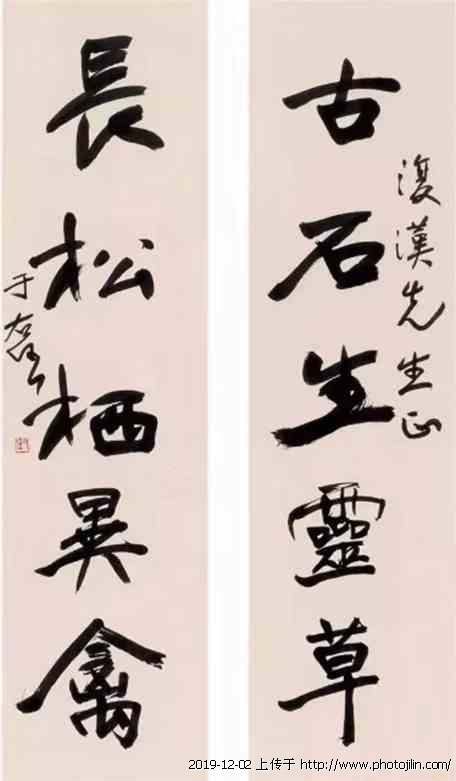 復漢先生正
古石生靈草
長松栖異禽
于右任
2019-12-02 上传于 http://www.photojilin.com/